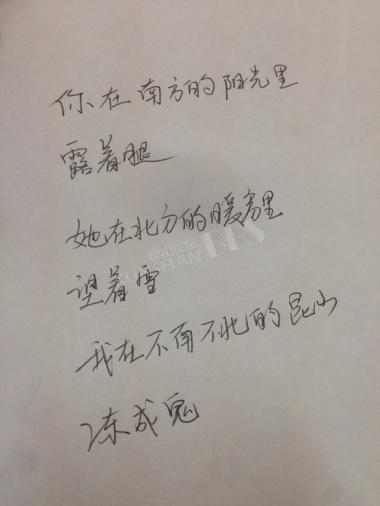 你在南方的阳光里
露着腿
她在北方的暖房里
望着雪
昆山论坛
KUNSHAN BBS
我在不南不北的昆山
冻成鬼